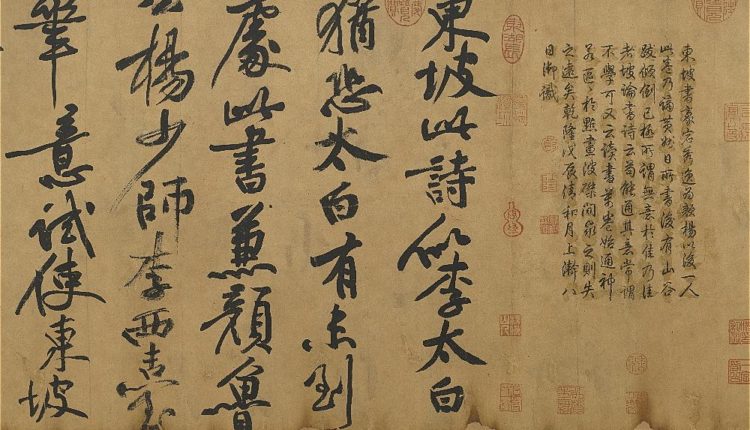 東坡書豪宕秀逸為顏楊以後一人
此卷乃謫黃州日所書後有山谷
跋傾倒已極所謂無意於佳乃佳
者坡論書詩云苟能通其意常謂
不學可又云讀書萬卷始通神
若區區於點畫波磔間求之則失
之遠矣乾隆戊辰清和月上澣八
日御識
東坡此詩似李太白
猶恐太白有未到
處此書兼顏魯
公楊少師李西臺
筆意試使東坡